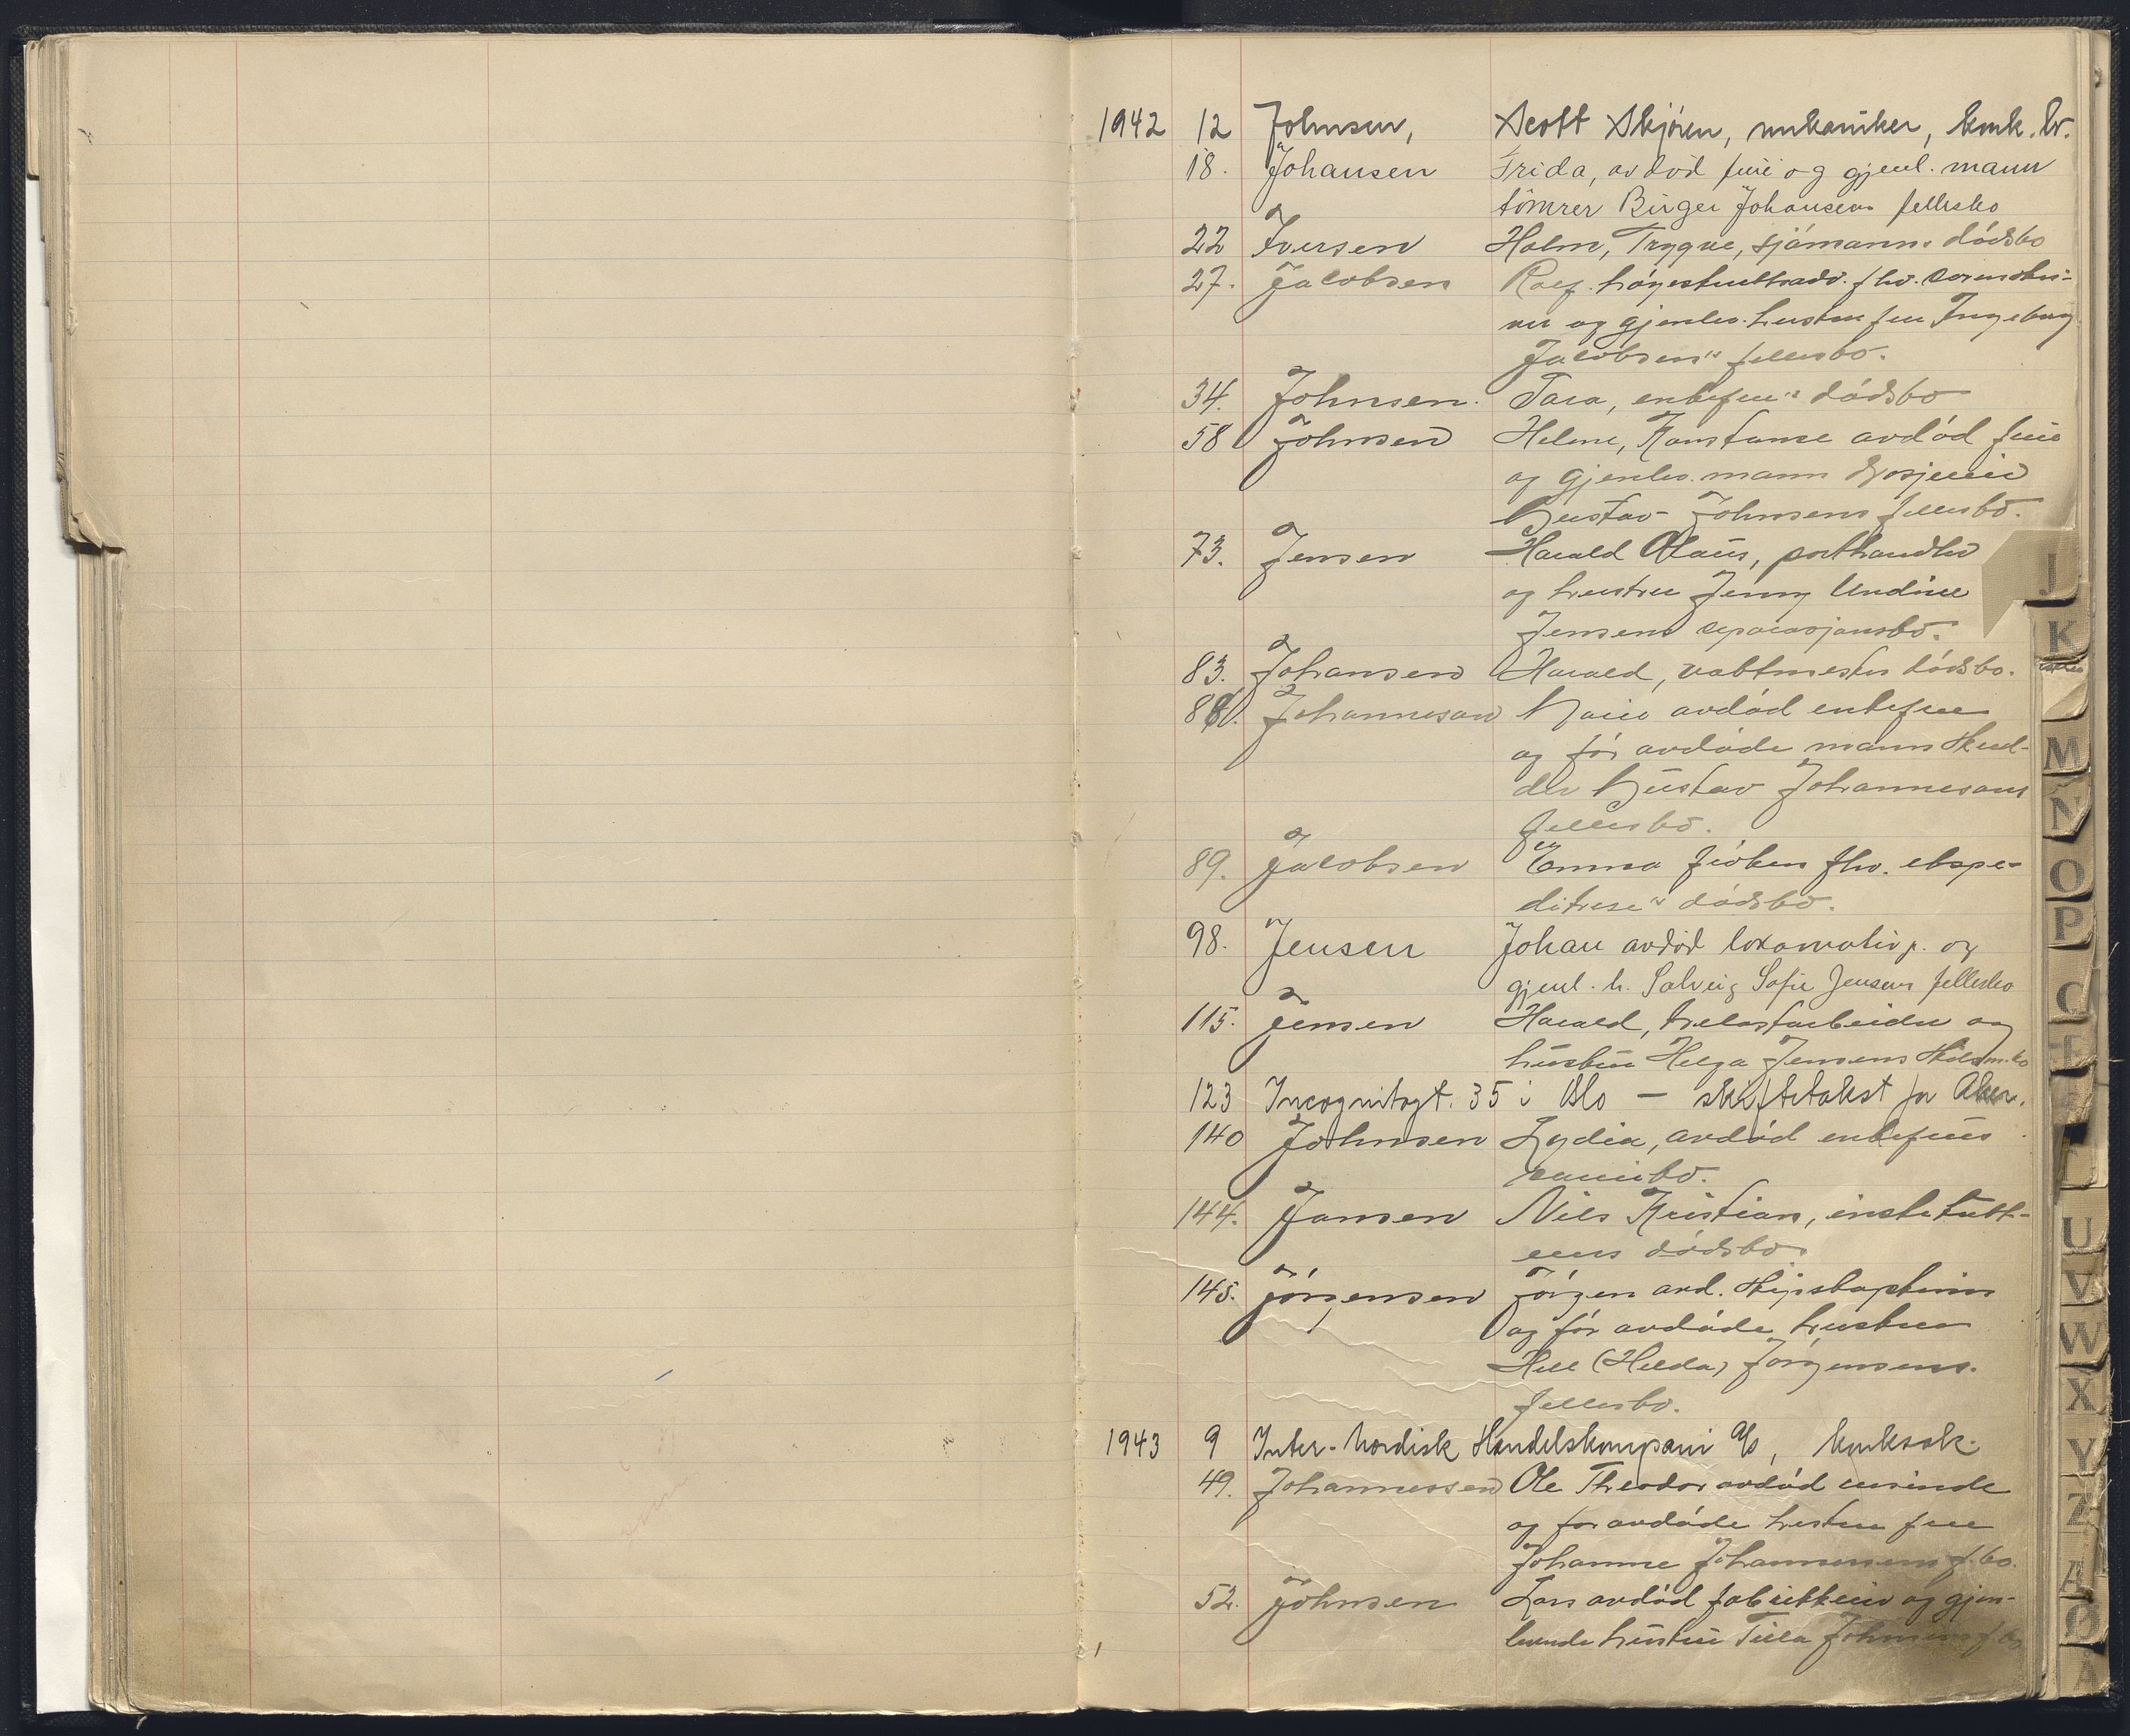 1942 12 Johnsen, Scott Skjören, mekaniker, konk. bo.
18. Johansen Frida, avdöd frue og gjenl. mann
tömrer Birger Johansens fellesbo
22 Iversen Holm, Trygve, sjömanns dödsbo
27. Jacobsen Rolf. höyesterettsadv. fhv. sorenskri-
ver og gjenlev. hustru fru Ingeborg
Jacobsen's fellesbo.
34. Johnsen. Tara, enkefru's dödsbo
58 Johnsen Helene, Konstanse avdöd frue
og gjenlev. mann
Gustav Johnsens fellesbo.
73. Jensen Harald Olaus, posthandler
og hustru Jenny Undine
Jensens separasjonsbo.
83. Johansen Harald, vaktmester dödsbo.
88. Johanneson avdöd enkefrue
og för avdöde mann skred-
der Gustav Johannesons
fellesbo.
89. Jacobsen Emma fröken fhv. ekspe-
ditrise's dödsbo.
98. Jensen Johan avdöd lokomotivf. og
gjenl. h. Solveig Sofie Jensens fellesbo
115. Jensen Harald, trelastarbeider og
hustru Helga Jensens skilsm.bo
123 Incognitogt. 35 i Oslo — skiftetakst for Aker.
140 Johnsen Lydia, avdöd enkefrues
samibo.
144. Jansen Nils Kristian,
dödsbo
145. Jörgensen Jörgen avd. skipskaptein
og för avdöde hustru
Hill (Hilda) Jörgensens.
fellesbo.
1943 9 Inter-Nordisk Handelskompani A/S, konkssk.
49. Johannessen Ole Theodor avdöd
og foravdöde hustru frue
Johanne Johannessens f.bo.
52. Johnsen Lars avdöd fabrikkeier og gjen-
levende hustru Tilla Johnsens f.bo
J
K
M
N
O
P
U
V
W
X
Y
Z
Ø